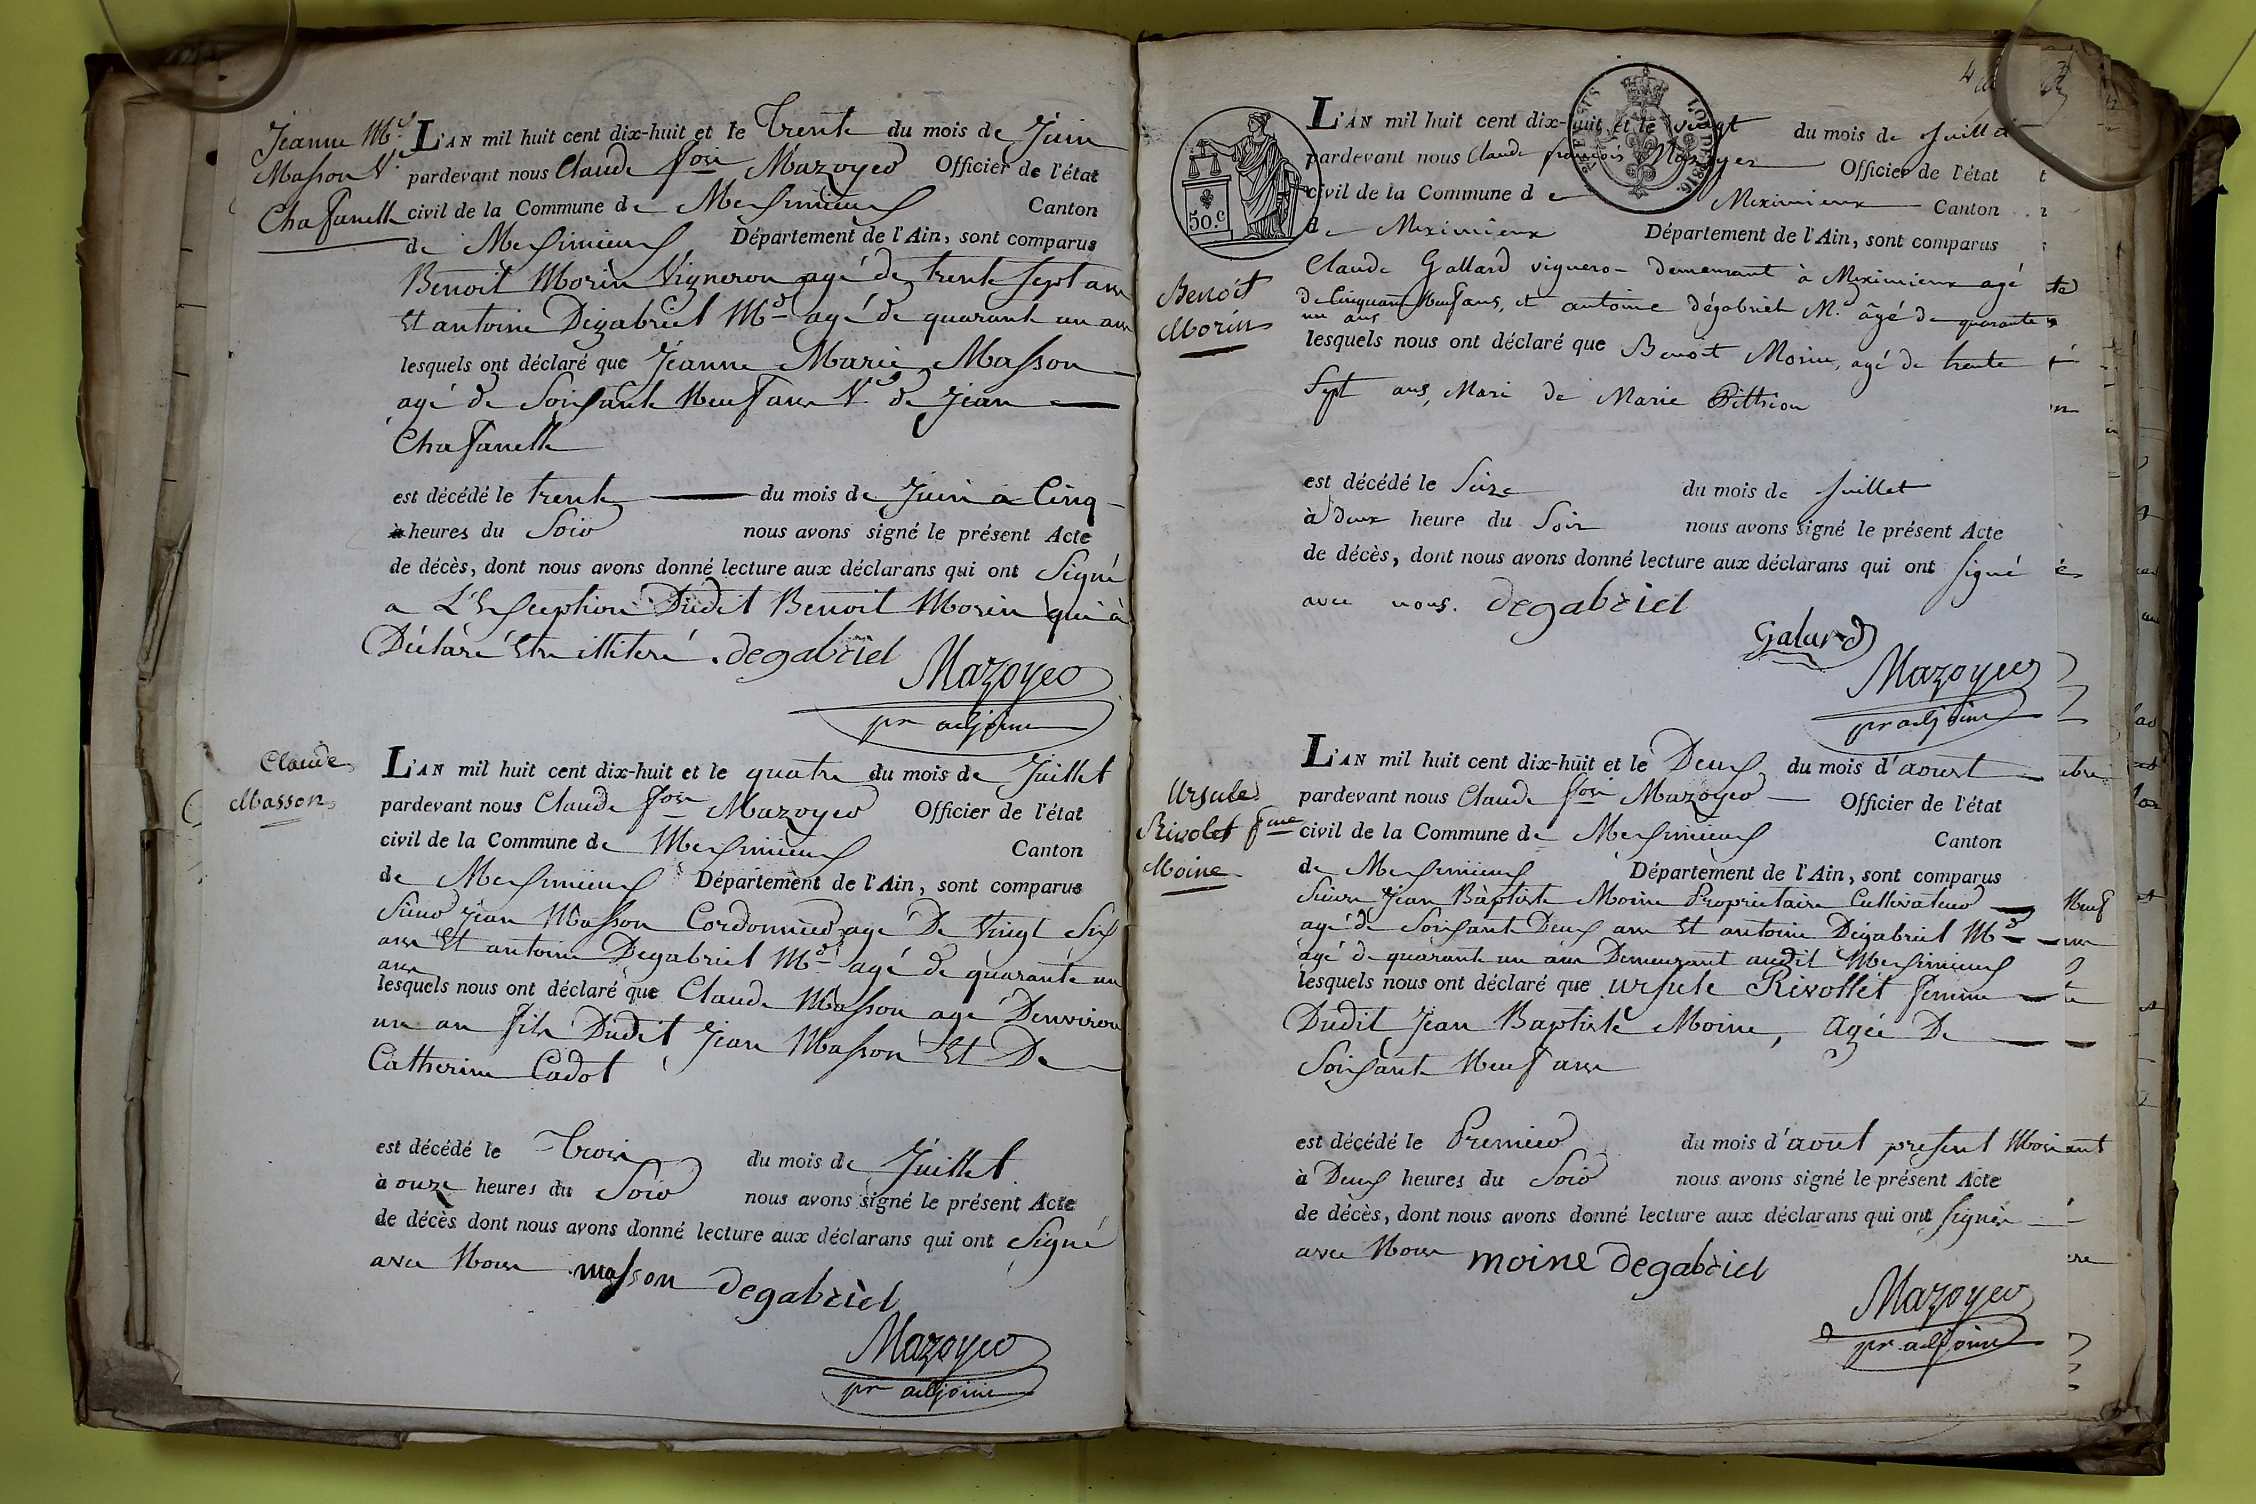 Jeanne Mie
Masson Ve
Chafanelle
L'AN mil huit cent dix-huit et le Trente du mois de Juin
pardevant nous Claude fois Mazoyer Officier de l'état
civil de la Commune de Meximieux Canton
de Meximieux Département de l'Ain, sont comparus
Benoit Morin Vigneron agé de trente sept ans
Et antoine Degabriel Md agé de quarante un ans
lesquels ont déclaré que Jeanne Marie Masson
agé de Soixante Neuf ans Ve de Jean
Chafanelle
est décédé le trente du mois de Juin a Cinq
à heures du Soir nous avons signé le présent Acte
de décès, dont nous avons donné lecture aux déclarans qui ont Signé
a L'Exception Dudit Benoit Morin qui à
Déclaré Etre illiteré. degabriel
Mazoyer
pr adjoint
Claude
Masson
L'AN mil huit cent dix-huit et le quatre du mois de Juillet
pardevant nous Claude fois Mazoyer Officier de l'état
civil de la Commune de Meximieux Canton
de Meximieux Département de l'Ain, sont comparus
Sieur Jean Masson Cordonnier agé De Vingt Six
ans Et antoine Degabriel Md agé de quarante un
ans
lesquels nous ont déclaré que Claude Masson agé D'environ
un an fils Dudit Jean Masson Et De
Catherine Cadot
est décédé le Trois du mois de Juillet
à onze heures du Soir nous avons signé le présent Acte
de décès dont nous avons donné lecture aux déclarans qui ont Signé
avec Nous masson degabriel
Mazoyer
pr adjoint
50.c
Benoit
Morin
L'AN mil huit cent dix-huit et le vingt du mois de Juillet
pardevant nous Claude françois Mazoyer Officier de l'état
civil de la Commune de Meximieux Canton
de Meximieux Département de l'Ain, sont comparus
Claude Gallard vigneron demeurant à Meximieux agé
de Cinquante Neuf ans, et antoine dégabriel Md âgé de quarante
un ans
lesquels nous ont déclaré que Benoit Morin, agé de trente
Sept ans, Mari de Marie Pithion
est décédé le Seize du mois de Juillet
à Deux heure du Soir nous avons signé le présent Acte
de décès, dont nous avons donné lecture aux déclarans qui ont signé
avec nous. degabriel
Galard
Mazoyer
pr adjoint
Ursule
Rivolet fme
Moine
L'AN mil huit cent dix-huit et le Deux du mois d'aoust
pardevant nous Claude fois Mazoyer Officier de l'état
civil de la Commune de Meximieux Canton
de Meximieux Département de l'Ain, sont comparus
Sieur Jean Baptiste Moine Proprietaire Cultivateur
agé de Soixante Deux ans Et antoine Dégabriel Md
agé de quarante un ans Demeurant audit Meximieux
lesquels nous ont déclaré que ursule Rivollet femme
Dudit Jean Baptiste Moine, Agée De
Soixante Neuf ans
est décédé le Premier du mois d'aout present Mois ant
à Deux heures du Soir nous avons signé le présent Acte
de décès, dont nous avons donné lecture aux déclarans qui ont signés
avec Nous moine degabriel
Mazoyer
pr adjoint